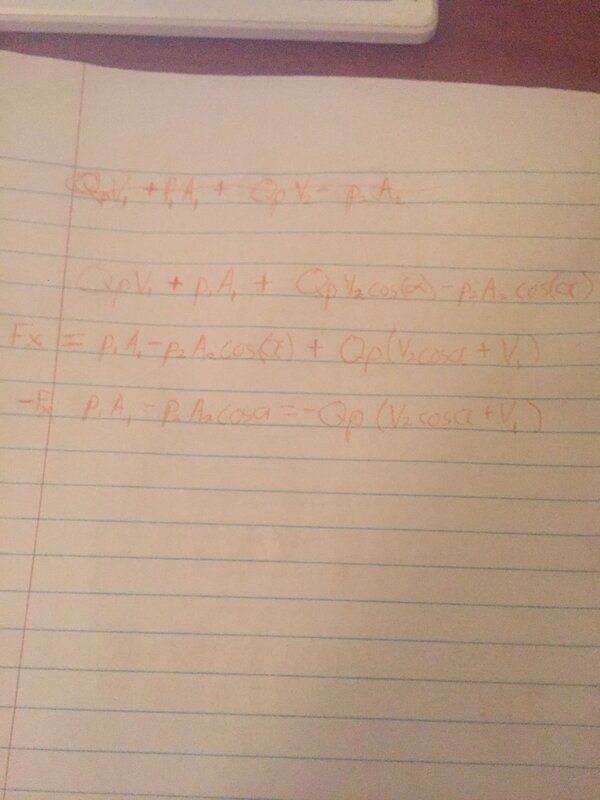 QpV₁ + P₁A₁ + QpV₂ - p₂A₂
QpV₁ + p₁A₁ + QpV₂cos(α) - p₂A₂cos(α)
Fx = p₁A₁ - p₂A₂cos(α) + Qp(V₂cosα + V₁)
p₁A₁ - p₂A₂cosα = -Qp(V₂cosα + V₁)